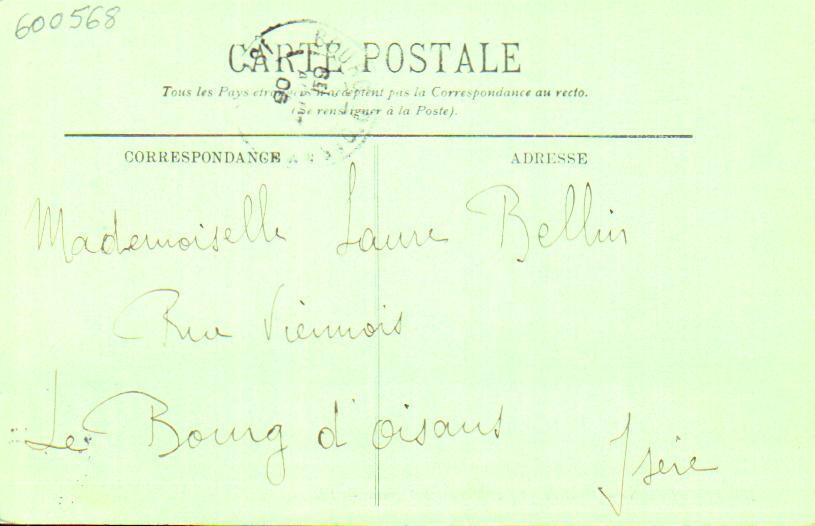 600568
CARTE POSTALE
Tous les Pays étrangers n'acceptent pas la Correspondance au recto.
(Se renseigner à la Poste).
CORRESPONDANCE ADRESSE
Mademoiselle Laure Bellin
Rue Viennois
Le Bourg d'oisans
Isère